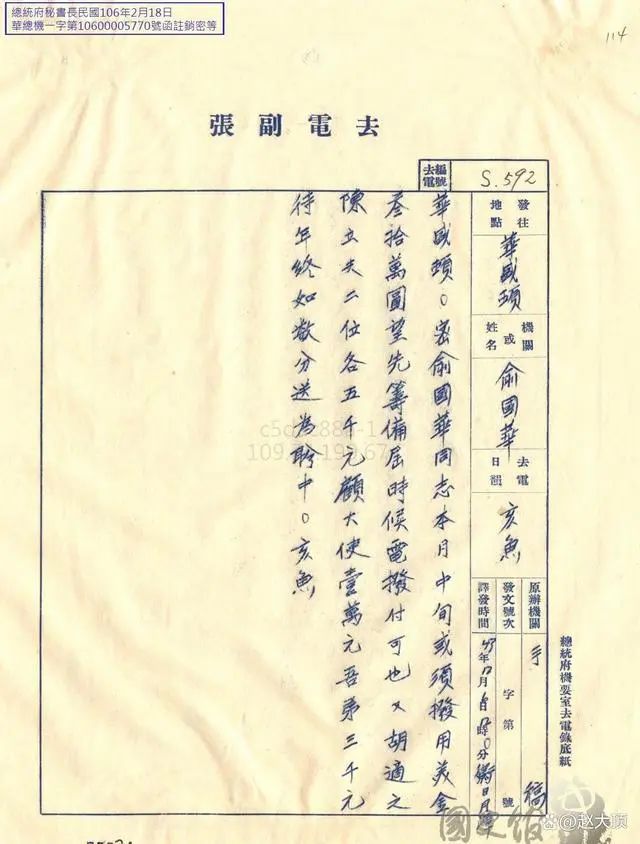 總統府秘書長民國106年2月18日
華總機一字第10600005770號函註銷密等
114
去電副張
去電編號
S.592
發往地點
華盛頓
機關或姓名
俞國華
去電日韻
亥魚
原辦機關
手稿
發文號次
字第 號
譯發時間
年12月 日 時 分
總統府機要室去電錄底紙
華盛頓○密俞國華同志本月中旬或須撥用美金
叁拾萬圓望先籌備屆時候電撥付可也又胡適之
陳立夫二位各五千元顧大使壹萬元吾弟三千元
待年終如數分送為盼中○亥魚
國史館
@赵大頭